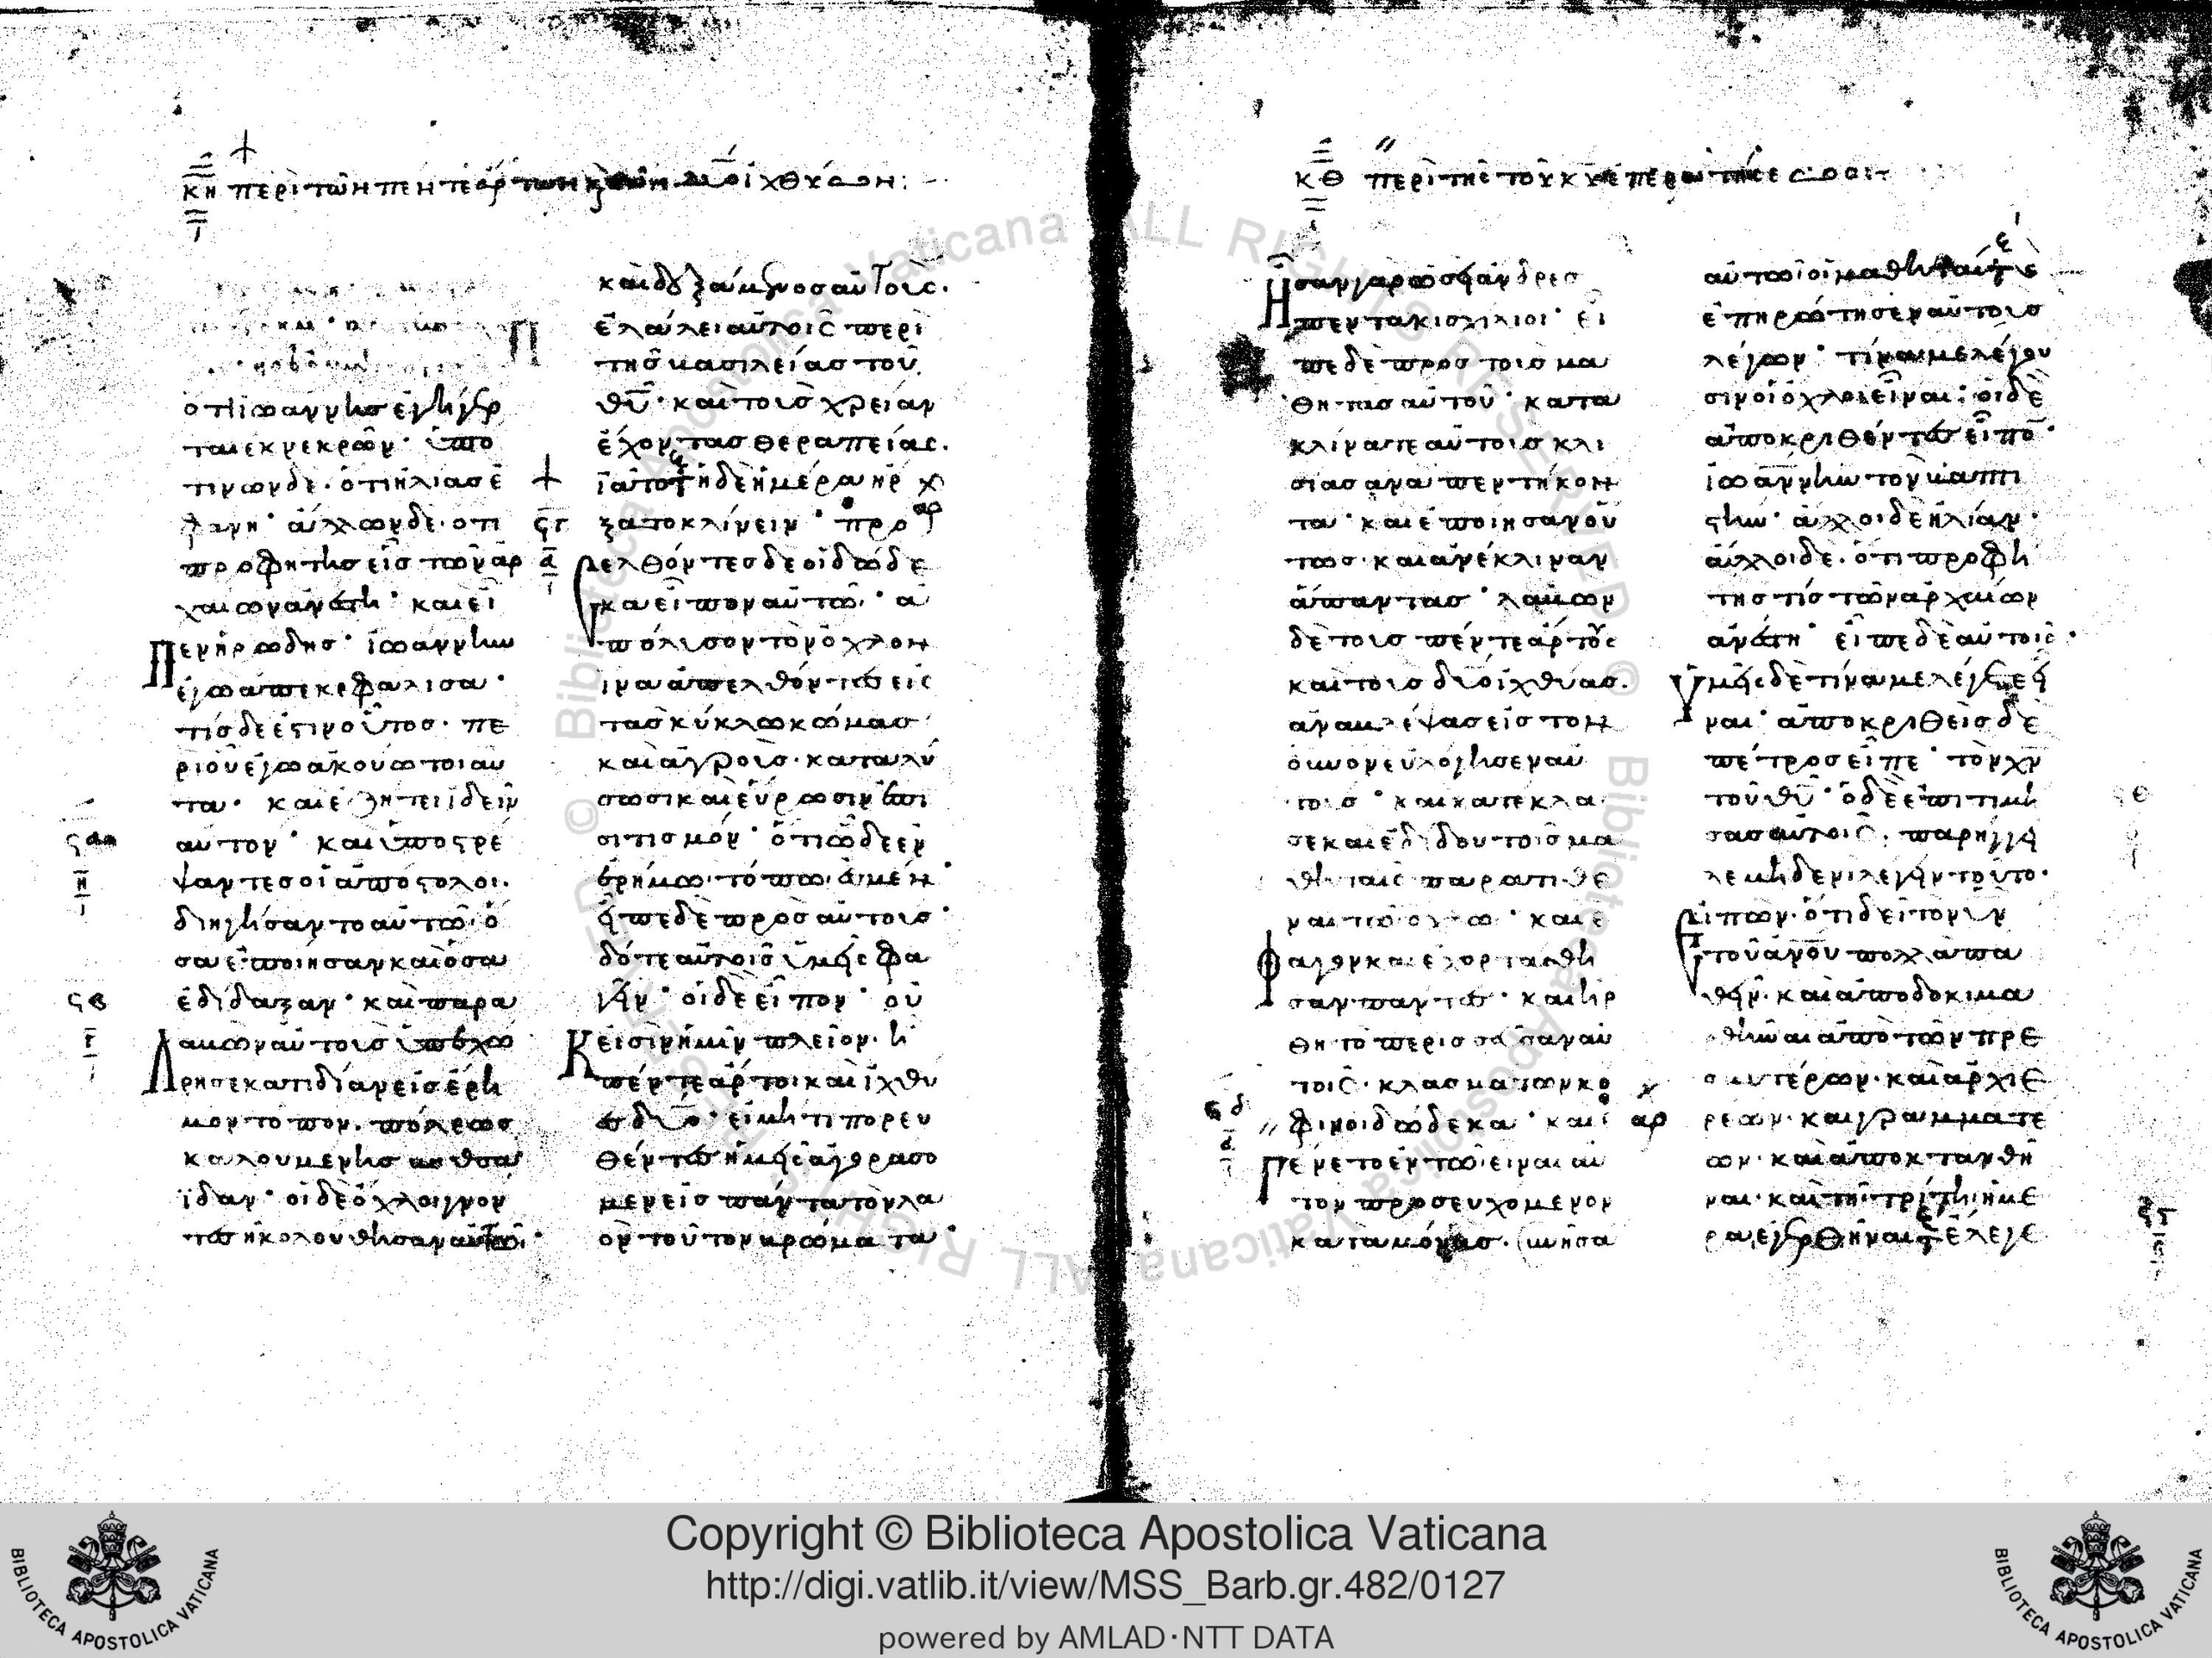 κη περὶ τῶν πέντε ἄρτων καὶ τῶν δύο ἰχθύων:
ὅτι ἰωάννης ἐγήγερ
ται ἐκ νεκρῶν· ὑπό
τινων δὲ· ὅτι ἠλίας ἐ
φάνη· ἄλλων δὲ· ὅτι
προφήτης εἷς τῶν ἀρ
χαίων ἀνέστη· καὶ εἶ
πεν ἡρώδης· ἰωάννην
ἐγὼ ἀπεκεφάλισα·
τίς δέ ἐστιν οὗτος· πε
ρὶ οὗ ἐγὼ ἀκούω τοιαῦ
τα· καὶ ἐζήτει ἰδεῖν
αὐτόν· καὶ ὑποστρέ
ψαντες οἱ ἀπόστολοι·
διηγήσαντο αὐτῶ· ὅ
σα ἐποίησαν καὶ ὅσα
ἐδίδαξαν· καὶ παρα
λαβὼν αὐτοὺς ὑπεχώ
ρησε κατιδίαν εἰς ἔρη
μον τόπον. πόλεως
καλουμένης βηθσα
ϊδάν· οἱ δὲ ὄχλοι γνόν
τες ἠκολούθησαν αὐτῶ·
καὶ δεξάμενος αὐτούς.
ἐλάλει αὐτοῖς περὶ
τῆς βασιλείας τοῦ
θυ· καὶ τοὺς χρείαν
ἔχοντας θεραπείας.
ἰᾶτο ἡ δὲ ἡμέρα ἤρ
ξατο κλίνειν· προ
σελθόντες δὲ οἱ δώδε
κα εἶπον αὐτῶ· ἀ
πόλυσον τὸν ὄχλον
ἵνα ἀπελθόντες εἰς
τὰς κύκλω κώμας
καὶ ἀγροὺς· καταλύ
σωσι καὶ εὕρωσιν ἐπι
σιτισμόν· ὅτι ὧδε ἐν
ἐρήμω τόπω ἐσμέν·
εἶπε δὲ πρὸς αὐτούς·
δότε αὐτοῖς ὑμεῖς φα
γεῖν· οἱ δὲ εἶπον· οὐ
κ εἰσὶν ἡμῖν πλεῖον· ἢ
πέντε ἄρτοι καὶ ἰχθύ
ες δύο· εἰ μή τι πορευ
θέντες ἡμεῖς ἀγοράσο
μεν εἰς πάντα τὸν λα
ὸν τοῦτον βρώματα·
κθ περὶ τῆς τοῦ κυ ἐπερωτήσεως
ἦσαν γὰρ ὡσεὶ ἄνδρες
πεντακισχίλιοι· εἶ
πε δὲ πρὸς τοὺς μα
θητὰς αὐτοῦ· κατα
κλίνατε αὐτοὺς κλι
σίας ἀνὰ πεντήκον
τα· καὶ ἐποίησαν οὕ
τως· καὶ ἀνέκλιναν
ἅπαντας· λαβὼν
δὲ τοὺς πέντε ἄρτους
καὶ τοὺς δύο ἰχθύας.
ἀναβλέψας εἰς τὸν
οὐνον εὐλόγησεν αὐ
τούς· καὶ κατέκλα
σε καὶ ἐδίδου τοῖς μα
θηταῖς παρατιθέ
ναι τῶ ὄχλω· καὶ ἔ
φαγον καὶ ἐχορτάσθη
σαν πάντες· καὶ ἤρ
θη τὸ περισσεῦσαν αὐ
τοῖς· κλασμάτων κό
φινοι δώδεκα· καὶ ἐ
γένετο ἐν τῶ εἶναι αὐ
τὸν προσευχόμενον
καταμόνας. συνῆσα
αὐτῶ οἱ μαθηταὶ
ἐπηρώτησεν αὐτοὺς
λέγων· τίνα με λέγου
σιν οἱ ὄχλοι εἶναι; οἱ δὲ
ἀποκριθέντες εἶπον·
ἰωάννην τὸν βαπτι
στήν· ἄλλοι δὲ ἠλίαν·
ἄλλοι δὲ. ὅτι προφή
της τίς τῶν ἀρχαίων
ἀνέστη· εἶπε δὲ αὐτοῖς·
ὑμεῖς δὲ τίνα με λέγετε εἶ
ναι· ἀποκριθεὶς δὲ
πέτρος εἶπε· τὸν χν
τοῦ θυ· ὁ δὲ ἐπιτιμή
σας αὐτοῖς. παρήγγει
λε μηδενὶ λέγειν τοῦτο·
εἰπὼν· ὅτι δεῖ τὸν υν
τοῦ ανου πολλὰ πα
θεῖν· καὶ ἀποδοκιμα
σθῆναι ἀπὸ τῶν πρε
σβυτέρων· καὶ ἀρχιε
ρέων· καὶ γραμματέ
ων· καὶ ἀποκτανθῆ
ναι· καὶ τῆ τρίτη ἡμέ
ρα ἐγερθῆναι ἔλεγε
Copyright © Biblioteca Apostolica Vaticana
http://digi.vatlib.it/view/MSS_Barb.gr.482/0127
powered by AMLAD·NTT DATA